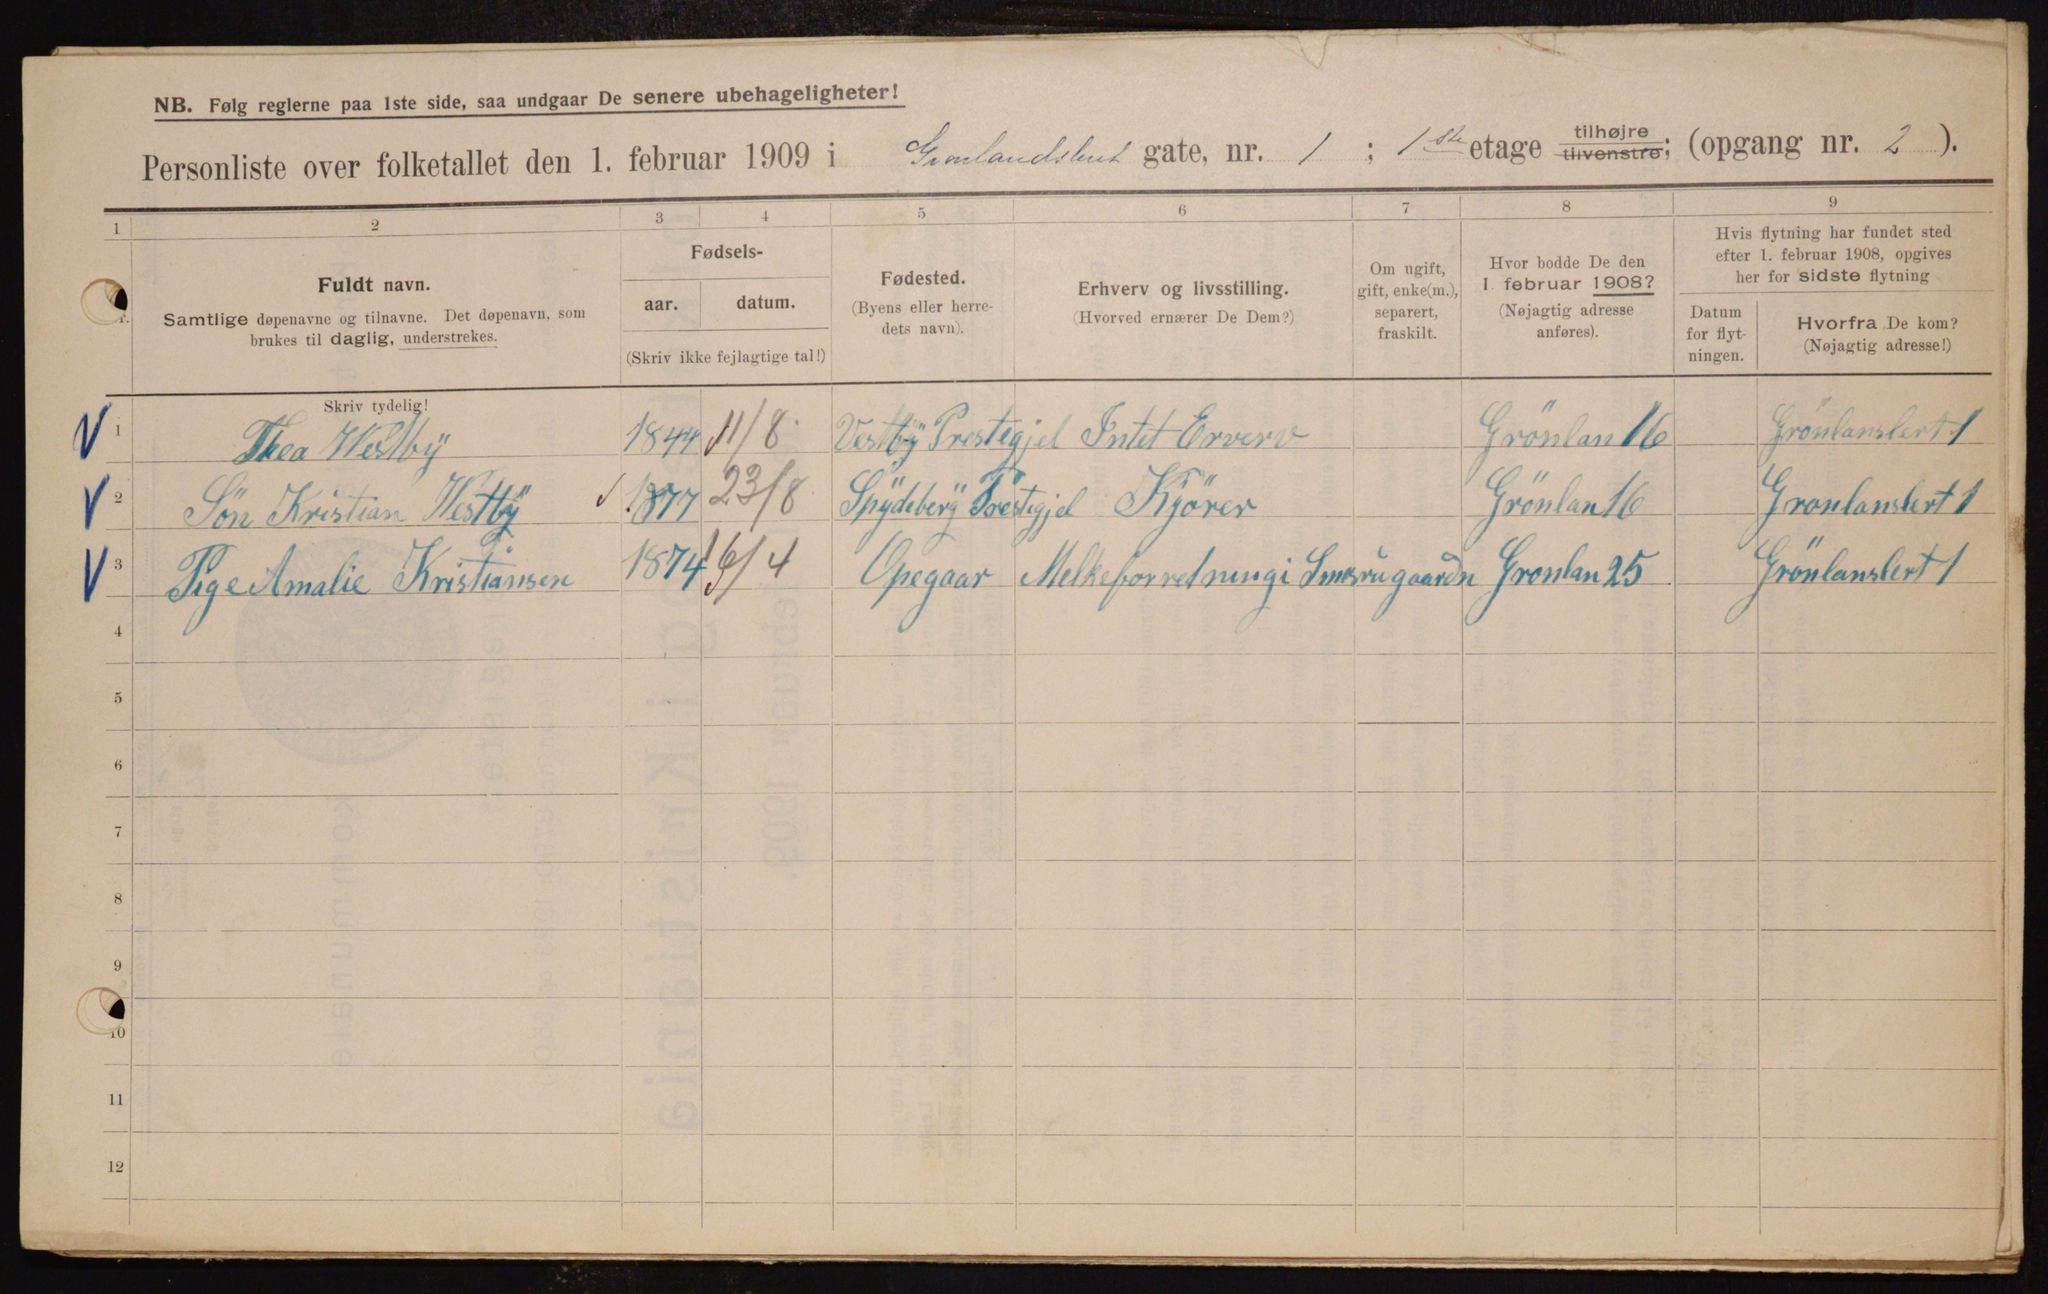 NB. Følg reglerne paa 1ste side, saa undgaar De senere ubehageligheter!
Personliste over folketallet den 1. februar 1909 i Grønlandsleret gate, nr. 1 ; 1ste etage tilhøjre tilvenstre; (opgang nr. 2 ).
1 2 3 4 5 6 7 8 9
Fuldt navn.
Samtlige døpenavne og tilnavne. Det døpenavn, som
brukes til daglig, understrekes.
Fødsels-
aar. datum.
(Skriv ikke fejlagtige tal!)
Fødested.
(Byens eller herre-
dets navn).
Erhverv og livsstilling.
(Hvorved ernærer De Dem?)
Om ugift,
gift, enke(m.),
separert,
fraskilt.
Hvor bodde De den
1. februar 1908?
(Nøjagtig adresse
anføres).
Hvis flytning har fundet sted
efter 1. februar 1908, opgives
her for sidste flytning
Datum
for flyt-
ningen.
Hvorfra De kom?
(Nøjagtig adresse!)
Skriv tydelig!
1 Thea Westbÿ 1844 11/8 Vestbÿ Prestegjel Intet Erverv Grönlan 16 Grönlanslert 1
2 Sön Kristian Westbÿ 1877 23/8 Spÿdeberÿ Prestegjel Kjörer Grönlan 16 Gronlanslert 1
3 Pige Amalie Kristiansen 1874 16/4 Opegaar Melkeforretning i Gronlan 25 Grönlanslert 1
4
5
6
7
8
9
10
11
12